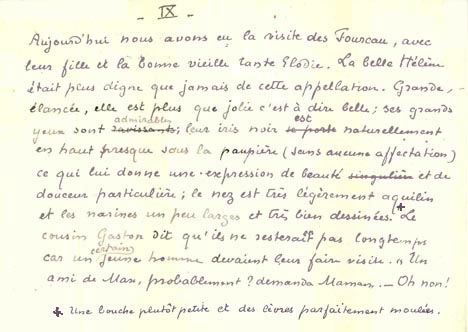 - IX -
Aujourd'hui nous avons eu la visite des Fourcau, avec
leur fille et la bonne vieille tante Elodie. La belle Hélène
était plus digne que jamais de cette appellation. Grande,
élancée, elle est plus que jolie c'est à dire belle; ses grands
admirables est
yeux sont ravissants; leur iris noir se porte naturellement
en haut presque sous la paupière (sans aucune affectation)
ce qui lui donne une expression de beauté singulière et de
douceur particulière; le nez est très légèrement aquilin
et les narines un peu larges et très bien dessinées. + Le
cousin Gaston dit qu'ils ne resteraient pas longtemps
certain
car un jeune homme devaient leur faire visite. " Un
ami de Max, probablement? demanda Maman. - Oh non!
+ Une bouche plutôt petite et des lèvres parfaitement moulées.